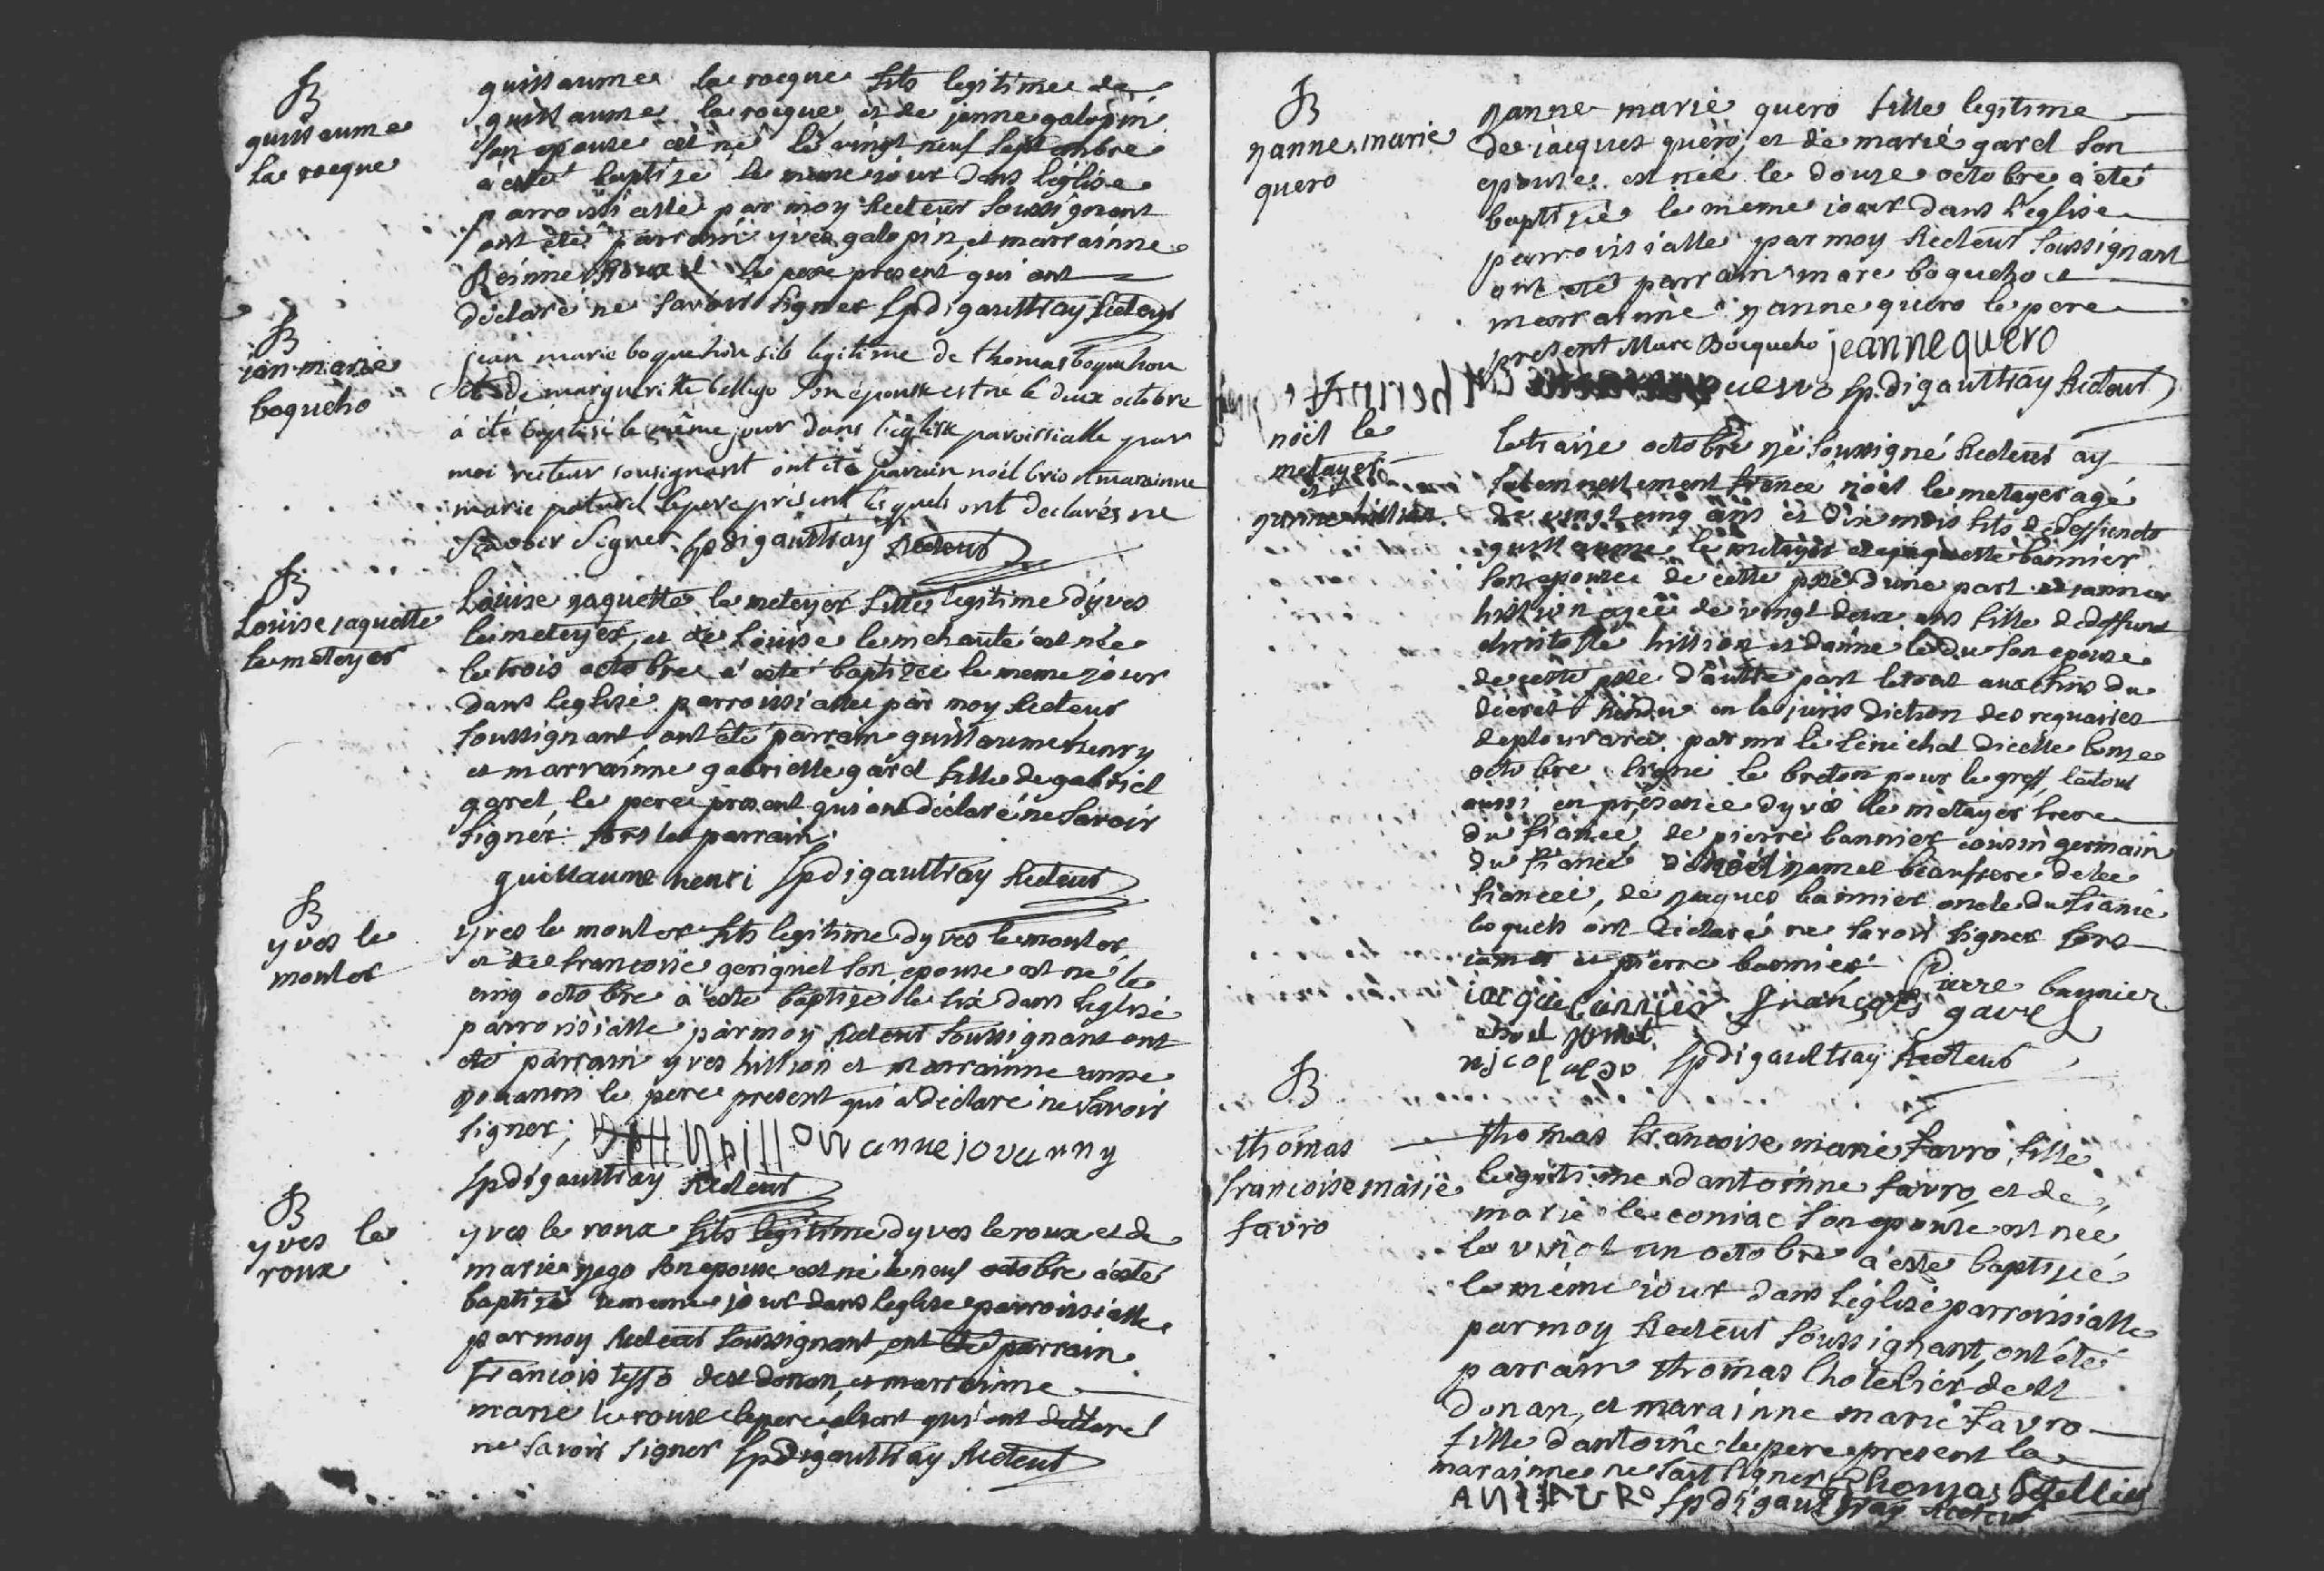 B
guillaume
la rocque
guillaume la rocque fils legitime de
guillaume la rocque et de jenne galopin
son epouse est né le vingt neuf septembre
a esté baptizé le meme jour dans leglise
parroissialle par moy Recteur soussignant
ont été parrain yves galopin, et marrainne
le pere present qui ont
declaré ne savoir signer Spdigaultray Recteur
B
jan marie
boqueho
jean marie boquehou fils legitime de thomas boquehou
et de margueritte bellego son epouse est ne le deux octobre
a été baptisé le même jour dans l'église paroissialle par
moi recteur sousignant ont été parain noël brio et marainne
marie paturel le pere présent lesquels ont declarés ne
scavoir signer Spdigaultray Recteur
B
Louise jaquette
le metayer
Louise jaquette le metayer fille legitime dyves
le metayer, et de Louise le mehauté est née
le trois octobre a esté baptizée le meme jour
dans leglise parroissialle par moy Recteur
soussignant ont été parrain guillaume henry
et marrainne gabrielle garel fille de gabriel
garel le pere present qui ont déclaré ne savoir
signer fors le parrain
guillaume henri Spdigaultray Recteur
B
yves le
monter
yves le monter fils legitime dyves le monter
et de francoise gerignel son epouse est né le
cinq octobre a esté baptizé le six dans leglise
parroissialle par moy Recteur soussignant ont
été parrain yves hillion et marrainne anne
jouanni le pere present qui a déclaré ne savoir
signer; anne jouanny
Spdigaultray Recteur
B
yves le
roux
yves le roux fils legitime dyves le roux et de
marie jego son epouse est né le neuf octobre a esté
baptizé le meme jour dans leglise parroissialle
par moy Recteur soussignant, ont été parrain
francois tesso de st donan, et marrainne
marie le roux le pere absent qui ont déclaré
ne savoir signer Spdigaultray Recteur
B
janne marie
quero
janne marie quero fille legitime
de jacques quero, et de marie garel son
epouse est née le douze octobre a été
baptizée le meme jour dans l'eglise
parroissialle par moy Recteur soussignant
ont été parrain marc boqueho et
marrainne janne quero le pere
present Marc Bocqueho jeanne quero
Spdigaultray Recteur
noël le
metayer
et
janne hillion
le traize octobre je soussigné Recteur ay
solemnellement fiancé noël le metayer agé
de vingt cinq ans et dix mois fils de deffuncts
guillaume le metayer et jaquette bannier
son epouse de cette psse d'une part et janne
hillion agée de vingt deux ans fille de deffunt
christofle hillion et danne le du son epouse
de cette psse d'autre part le tout aux fins du
décret Rendu en la jurisdiction des reguaires
de plouvara par mr le sénéchal dicelle le onze
octobre signé le breton pour le greff, le tout
aussi en présence dyves le metayer frere
du fiancé, de pierre bannier cousin germain
du fiancé de noël jamel beaufrere de la
fiancée, de jaques bannier oncle du fiancé
lesquels ont déclaré ne savoir signer fors
jamel et pierre bannier Pierre bannier
François garel
noel jamel
Spdigaultray Recteur
B
thomas
francoise marie
favro
thomas francoise marie favro, fille
legitime dantoinne favro, et de
marie le coniac son epouse est née
le vingt un octobre a esté baptizée
le même jour dans l'église parroissialle
par moy Recteur soussignant, ont été
parrain thomas lhotelier de st
donan, et marainne marie favro
fille d'antoine le pere present la
marainne ne sait signer Thomas
Spdigaultray Recteur